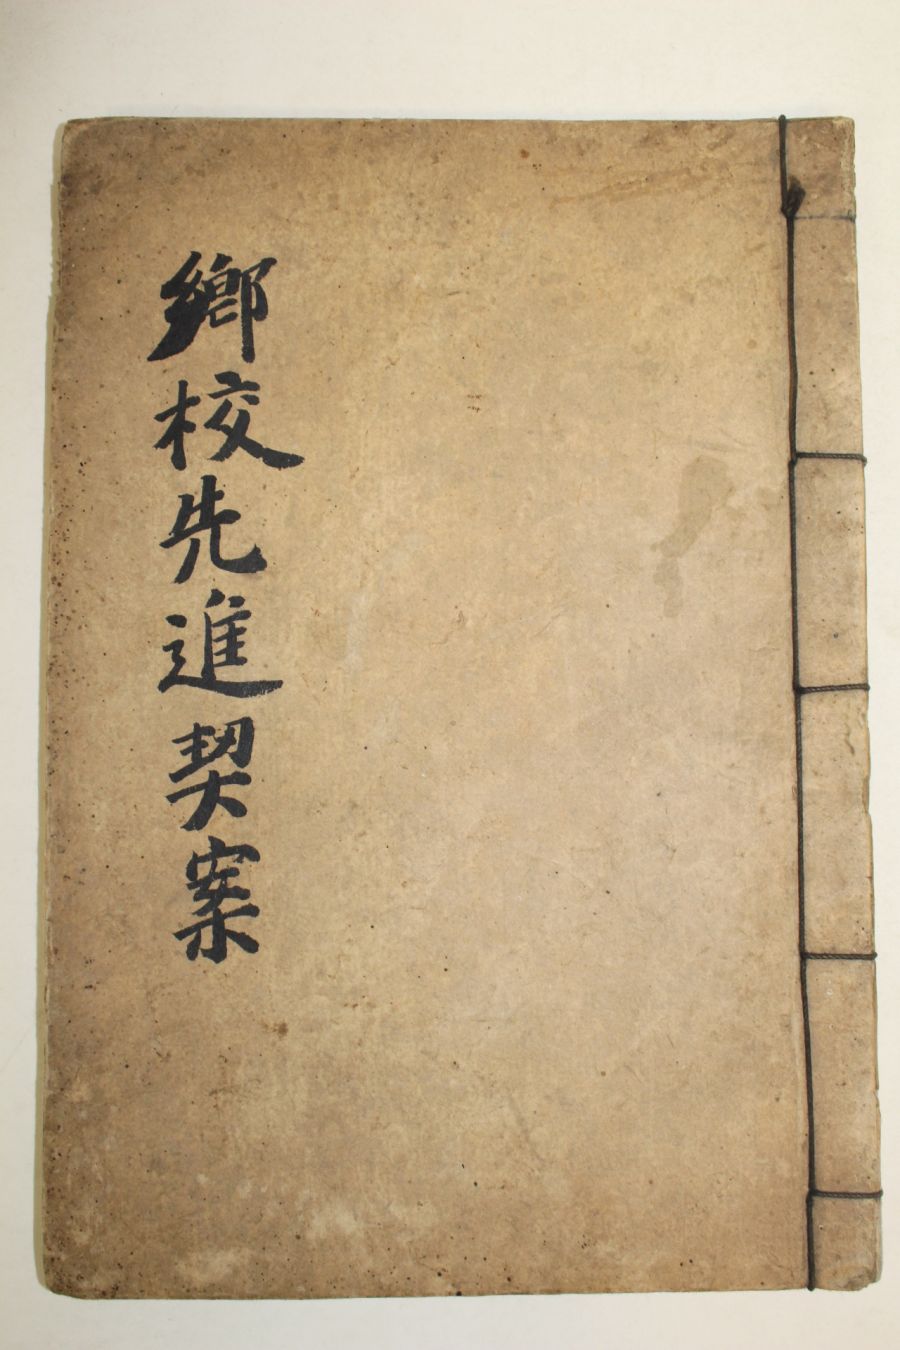 鄕校先進契案